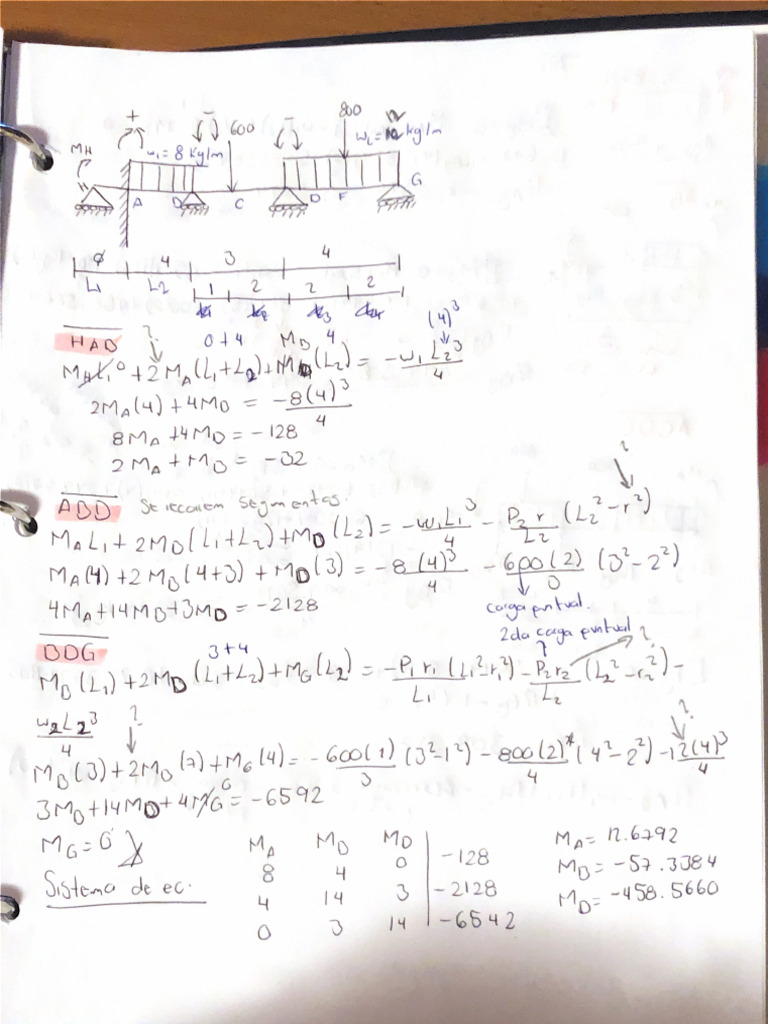 +
600
800
12
M_H
w₁ = 8 kg/m
w₂ = kg/m
A D C D F G
ø 4 3 4
L₁ L2 1 2 2 2
(4)³
HAB
? 0+4 M_D 4
M_H L₁ ⁰ + 2 M_A (L₁+L₂) + M (L₂) = -w₁ L₂³/4
2M_A(4) + 4M_D = -8(4)³/4
8M_A + 4M_D = -128
2M_A + M_D = -32
?
ABD Se recorren segmentos.
M_A L₁ + 2M_D (L₁+L₂) + M_D (L₂) = -w₁L₁³/4 - P₂ r/L₂ (L₂² - r²)
M_A(4) + 2M_B(4+3) + M_D(3) = -8(4)³/4 - 600(2)/3 (3² - 2²)
4M_A + 14M_D + 3M_D = -2128
carga puntual.
2da carga puntual
BDG
3+4 ?
M_B (L₁) + 2M_D (L₁+L₂) + M_G (L₂) = -P₁ r₁/L₁ (L₁² - r₁²) - P₂ r₂/L₂ (L₂² - r₂²) -
w₂L₂³/4
? ?
M_B (3) + 2M_D (7) + M_G (4) = -600(1)/3 (3² - 1²) - 800(2)*/4 (4² - 2²) - 12(4)³/4
3M_D + 14M_D + 4M_G⁰ = -6592
M_G = 0
Sistema de ec.
M_A M_D M_D
8 4 0 | -128
4 14 3 | -2128
0 3 14 | -6542
M_A = 12.6792
M_B = -57.3384
M_D = -458.5660